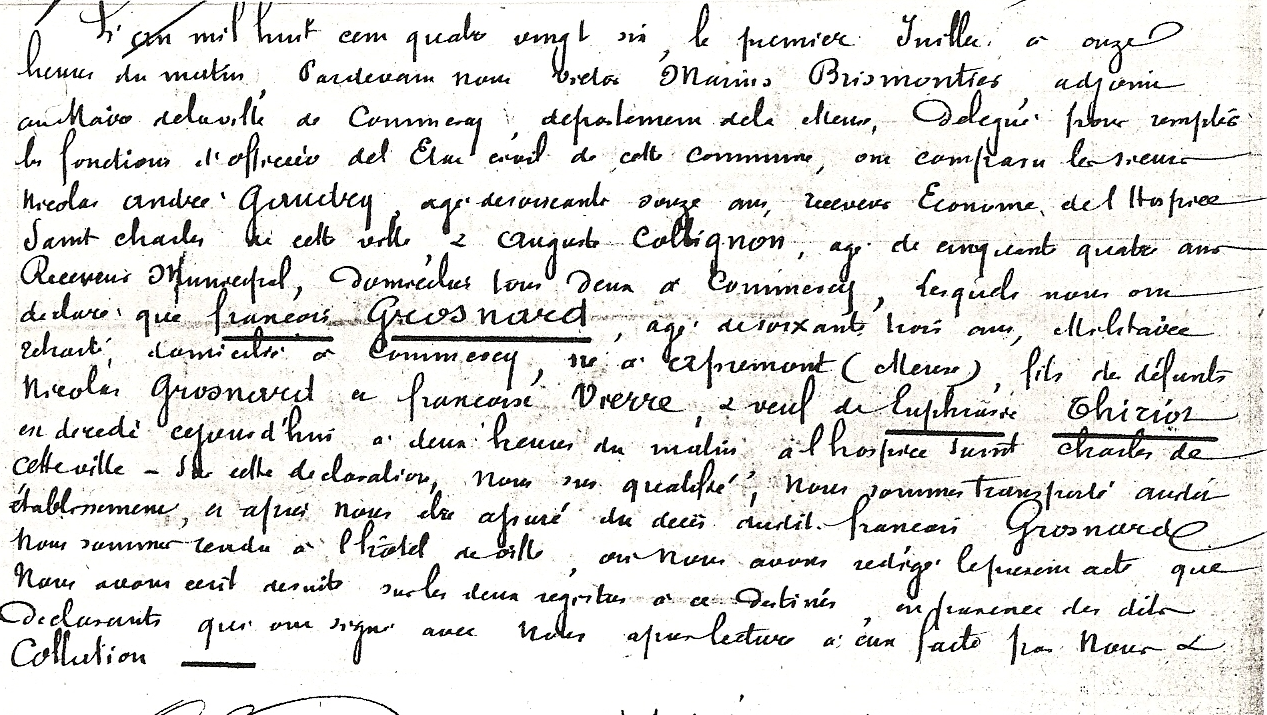 L'an mil huit cent quatre vingt six, le premier Juillet à onze
heures du matin, Pardevant nous Victor Marius Brismontier adjoint
au Maire de la ville de Commercy, département de la Meuse, Délégué pour remplir
les fonctions d'officier de l'Etat civil de cette commune, ont comparu les sieurs
Nicolas André Gaudrey, agé de soixante onze ans, receveur Econome de l'Hospice
Saint Charles de cette ville & Auguste Collignon, agé de cinquante quatre ans
Receveur Municipal, Domiciliés tous Deux à Commercy, Lesquels nous ont
déclaré que françois Grosnard, agé de soixante trois ans, Militaire
retraité, domicilié à Commercy, né à Apremont (Meuse), fils de défunts
Nicolas Grosnard et françoise Vierre, & veuf de Euphrasie Thiriot
est décédé cejourd'hui à deux heures du matin à l'hospice Saint Charles de
cette ville – Sur cette déclaration, Nous sus qualifié, Nous sommes transporté audit
établissement, et après nous être assuré du décès dudit françois Grosnard
Nous sommes rendu à l'hôtel de ville, où Nous avons rédigé le présent acte que
Nous avons écrit de suite sur les deux registres à ce Destinés en présence des dits
Déclarants qui ont signé avec Nous après lecture à eux faite par Nous &
Collation